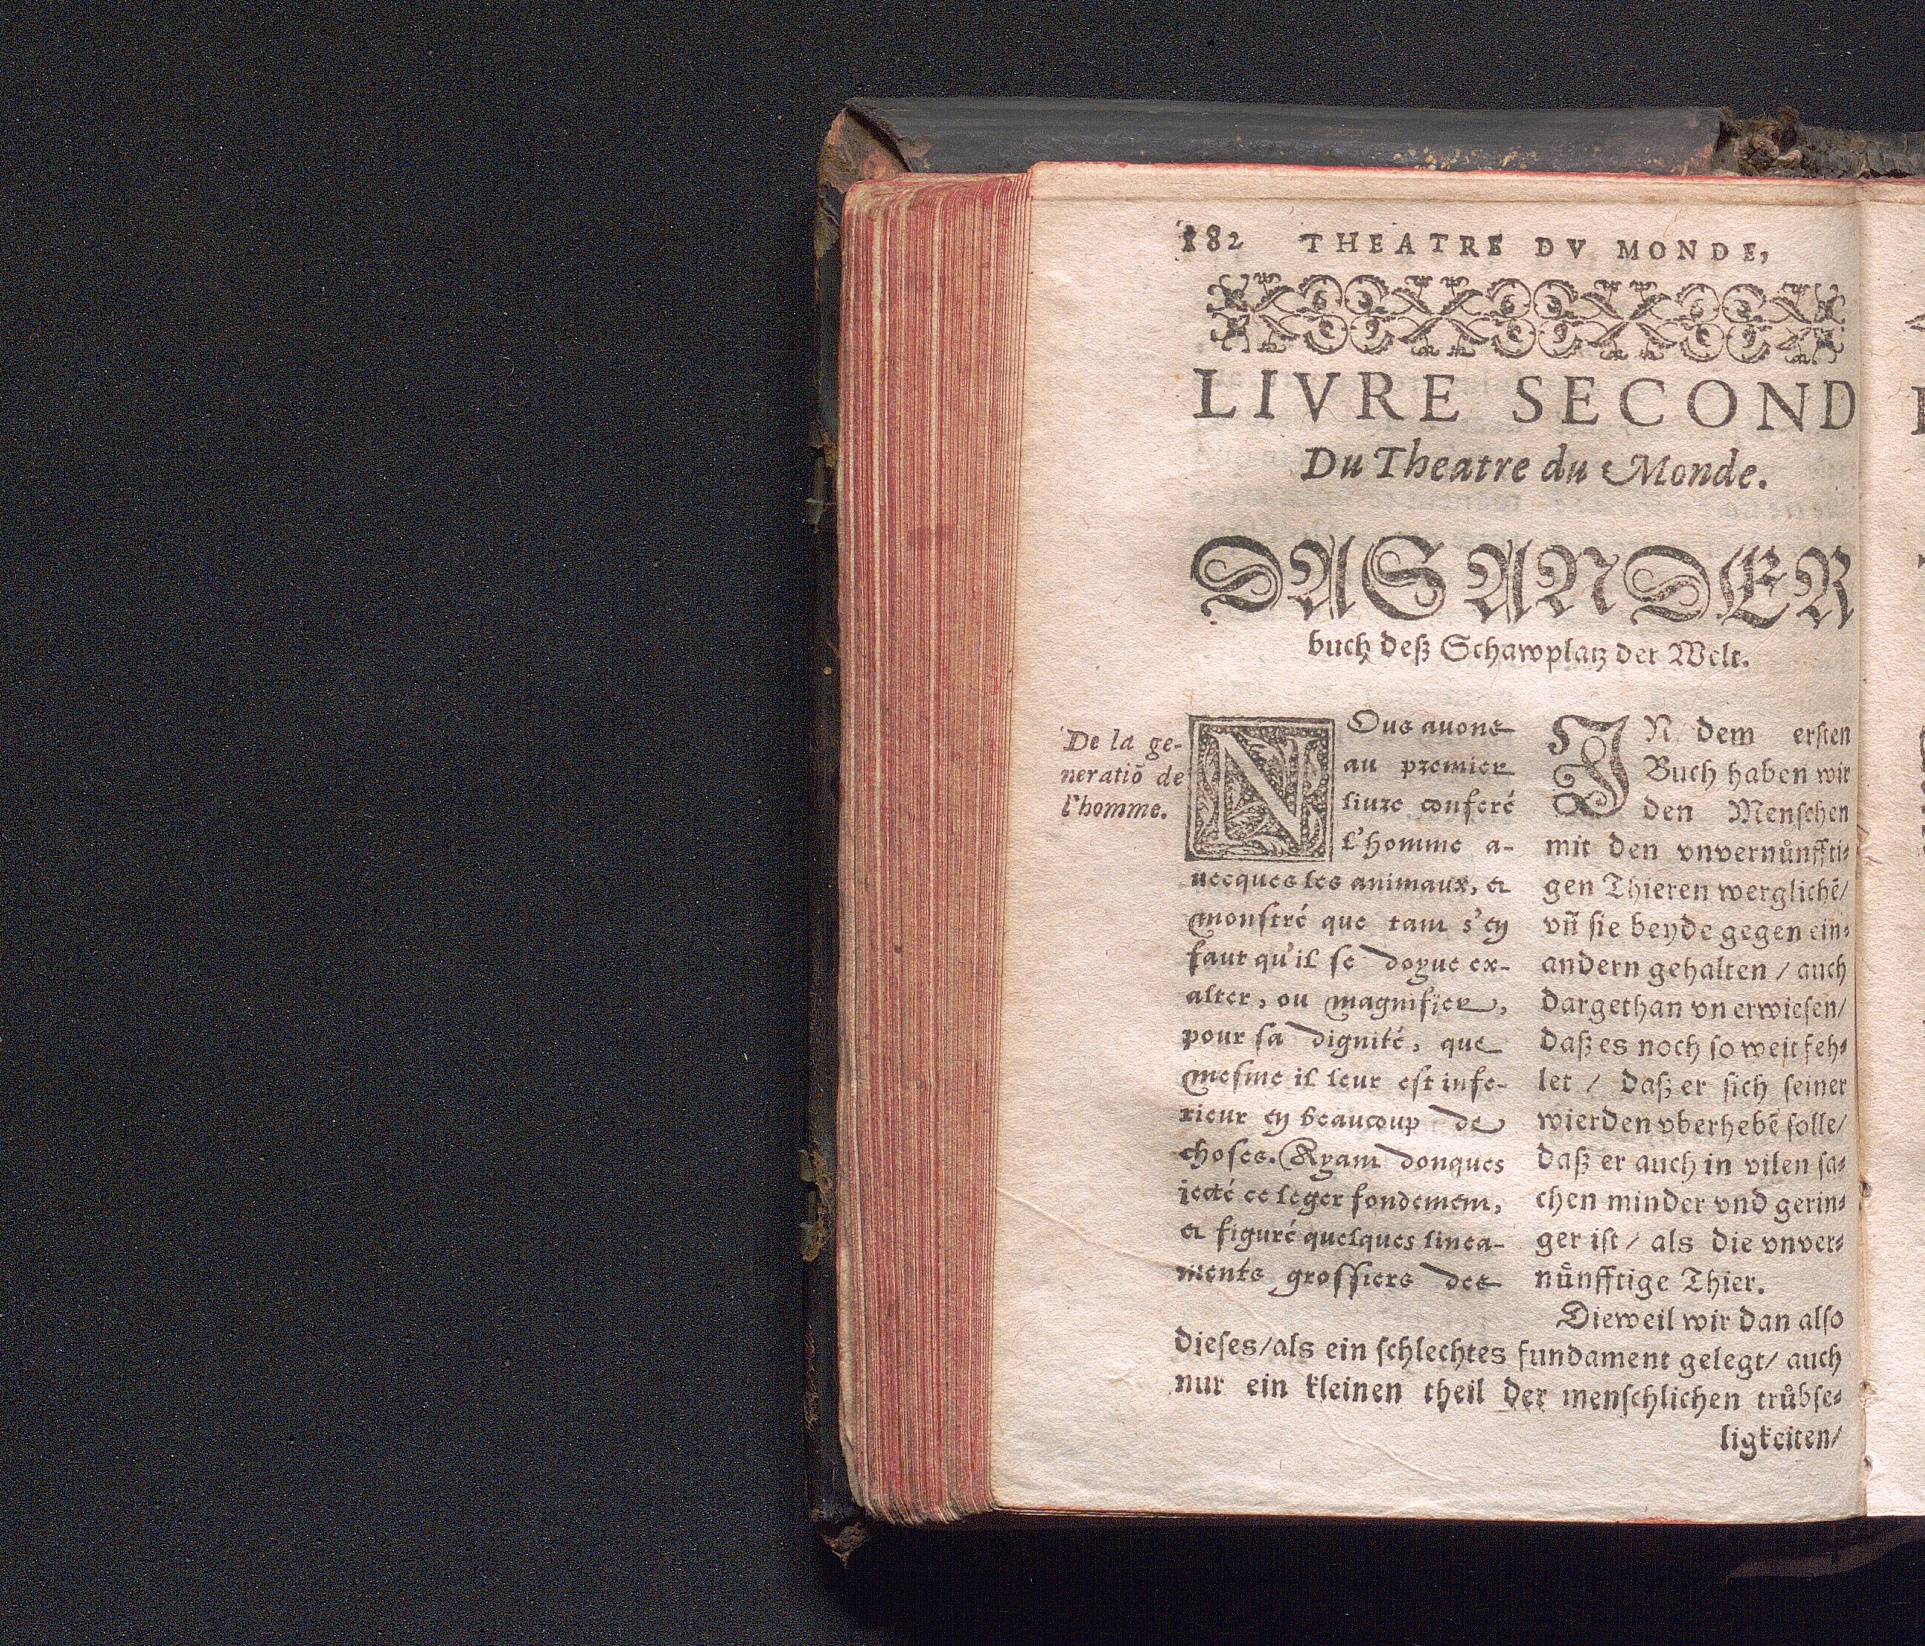 182 THEATRE DV MONDE,
LIVRE SECOND
Du Theatre du Monde.
DAS ANDER
buch deß Schawplatz der Welt.
De la ge-
neratiõ de
l'homme.
NOus auons
au premier
liure conferé
l'homme a-
uecques les animaux, &
monstré que tant s'en
faut qu'il se doyue ex-
alter, ou magnifier,
pour sa dignité, que
mesme il leur est infe-
rieur en beaucoup de
choses. Ayant donques
iecté ce leger fondement,
& figuré quelques linea-
ments grossiers des
IN dem erſten
Buch haben wir
den Menſchen
mit den vnvernuͤnffti-
gen Thieren werglichẽ/
vñ ſie beyde gegen ein-
andern gehalten / auch
dargethan vn erwieſen/
daß es noch ſo weit feh-
let / daß er ſich ſeiner
wierden vberhebẽ ſolle/
daß er auch in vilen ſa-
chen minder vnd gerin-
ger iſt / als die vnver-
nuͤnfftige Thier.
Dieweil wir dan alſo
dieſes/als ein ſchlechtes fundament gelegt/ auch
nur ein kleinen theil der menſchlichen truͤbſe-
ligkeiten/